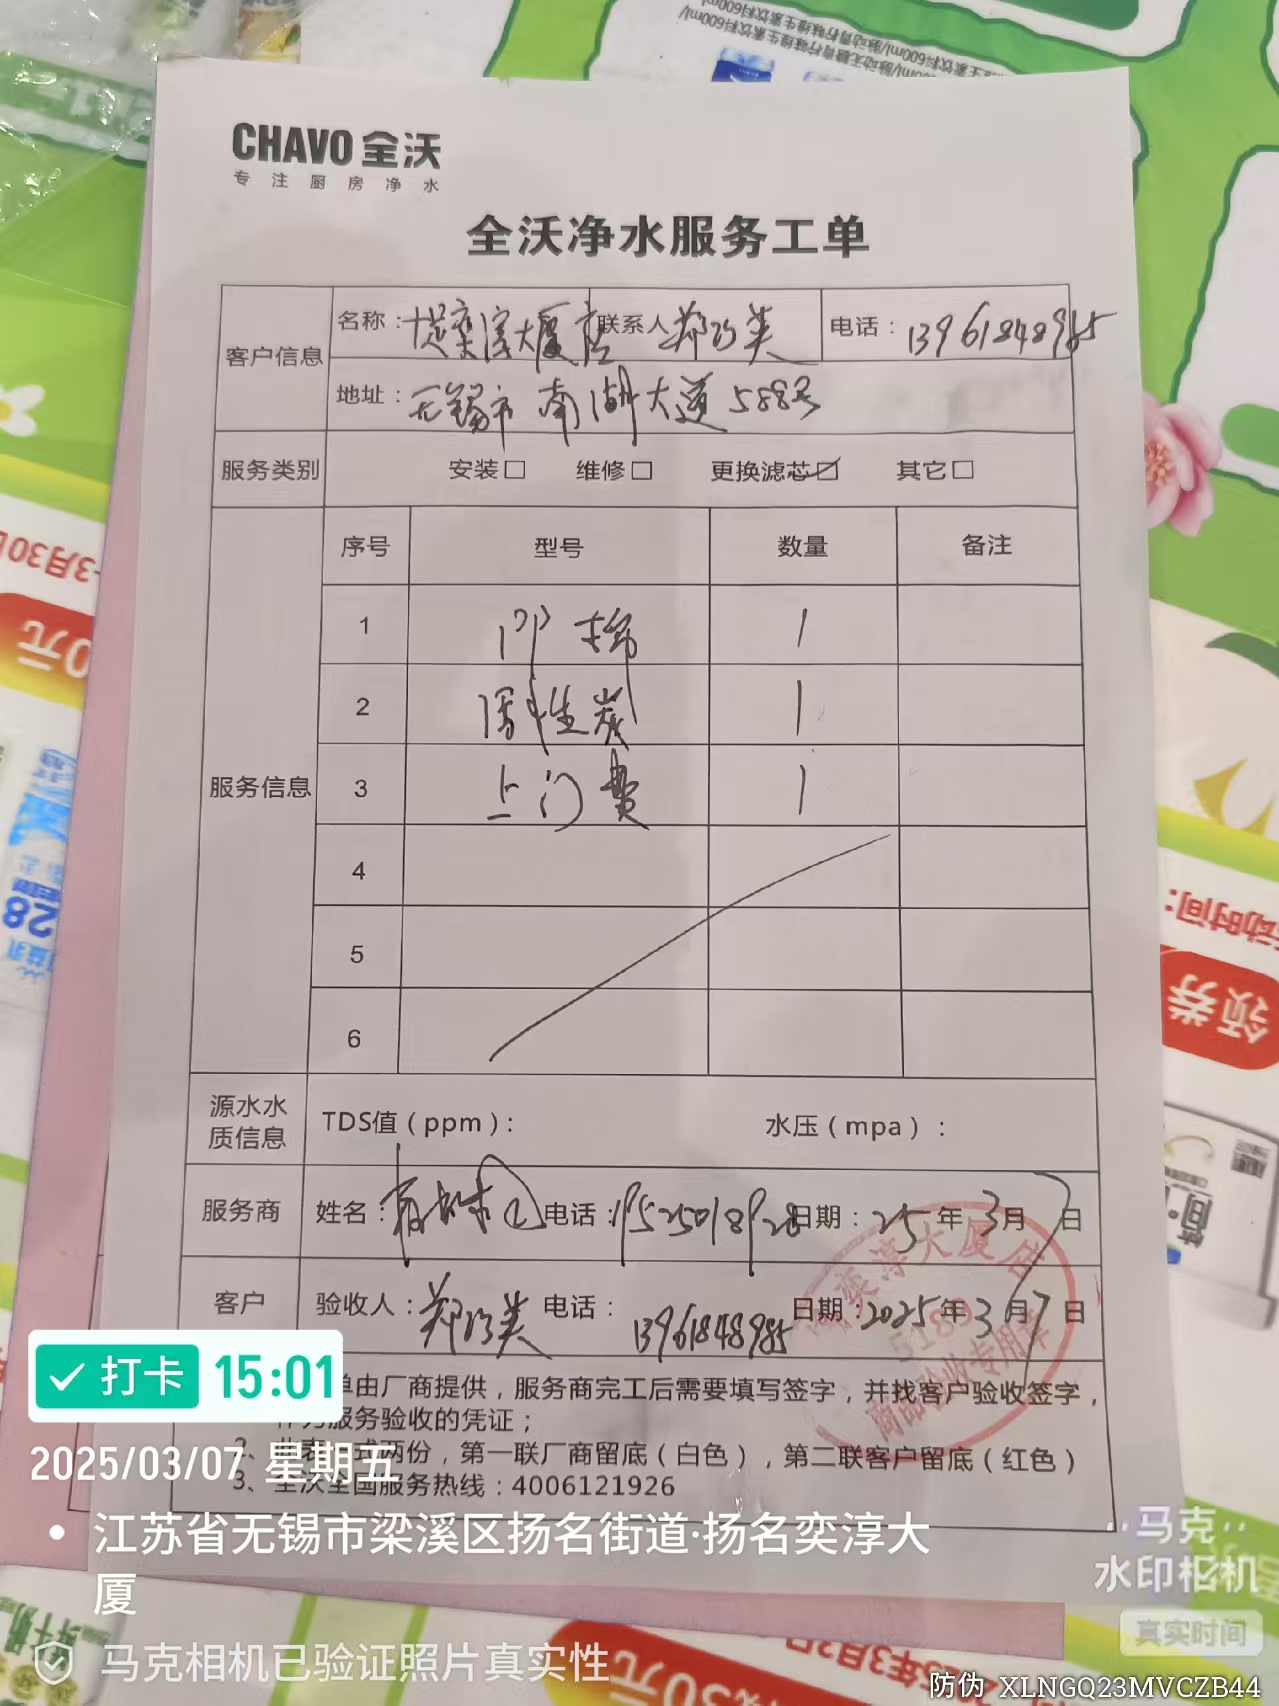 CHAVO 全沃
专注厨房净水
全沃净水服务工单
客户信息
名称：奕淳大厦店 联系人 郑 电话：13961848985
地址：无锡市南湖大道588号
服务类别 安装□ 维修□ 更换滤芯☑ 其它□
服务信息
序号 型号 数量 备注
1 PP棉 1
2 活性炭 1
3 上门费 1
4
5
6
源水水质信息 TDS值（ppm）： 水压（mpa）：
服务商 姓名： 电话：19525018928 日期：25年3月7日
客户 验收人：郑 电话：13961848985 日期：2025年3月7日
奕淳大厦店
商品验收专用章
单由厂商提供，服务商完工后需要填写签字，并找客户验收签字，
作为服务验收的凭证；
2、此表一式两份，第一联厂商留底（白色），第二联客户留底（红色）
3、全沃全国服务热线：4006121926
打卡 15:01
2025/03/07 星期五
江苏省无锡市梁溪区扬名街道·扬名奕淳大
厦
马克相机已验证照片真实性
马克
水印相机
真实时间
防伪 XLNGQ23MVCZB44
领券
动时间：
28